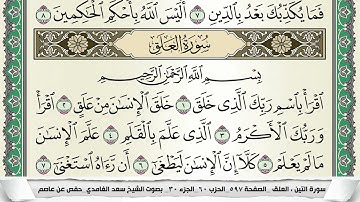 فَمَا يُكَذِّبُكَ بَعْدُ بِٱلدِّينِ ٧ أَلَيْسَ ٱللَّهُ بِأَحْكَمِ ٱلْحَٰكِمِينَ ٨
سُورَةُ العَلَقِ
بِسْمِ ٱللَّهِ ٱلرَّحْمَٰنِ ٱلرَّحِيمِ
ٱقْرَأْ بِٱسْمِ رَبِّكَ ٱلَّذِى خَلَقَ ١ خَلَقَ ٱلْإِنسَٰنَ مِنْ عَلَقٍ ٢ ٱقْرَأْ
وَرَبُّكَ ٱلْأَكْرَمُ ٣ ٱلَّذِى عَلَّمَ بِٱلْقَلَمِ ٤ عَلَّمَ ٱلْإِنسَٰنَ
مَا لَمْ يَعْلَمْ ٥ كَلَّآ إِنَّ ٱلْإِنسَٰنَ لَيَطْغَىٰٓ ٦ أَن رَّءَاهُ ٱسْتَغْنَىٰٓ ٧
سورة التين ، العلق الصفحة ٥٩٧ الحزب ٦٠ الجزء ٣٠ بصوت الشيخ سعد الغامدي حفص عن عاصم